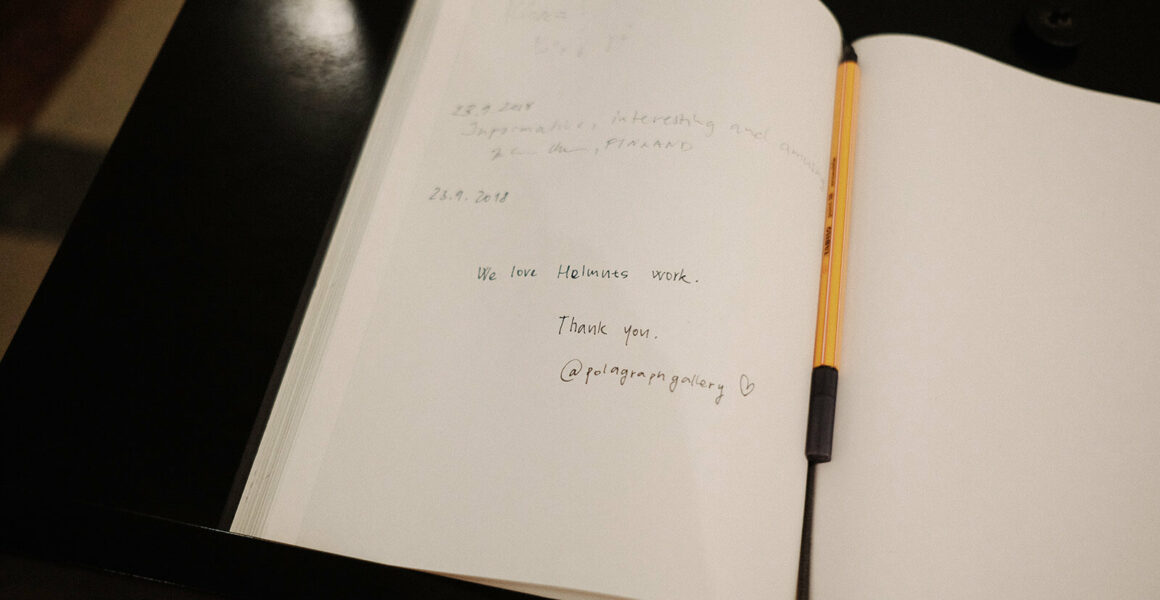 23.9.2018
Informative, interesting and
FINLAND
23.9.2018
We love Helmuts work.
Thank you.
@polagraphgallery ♡